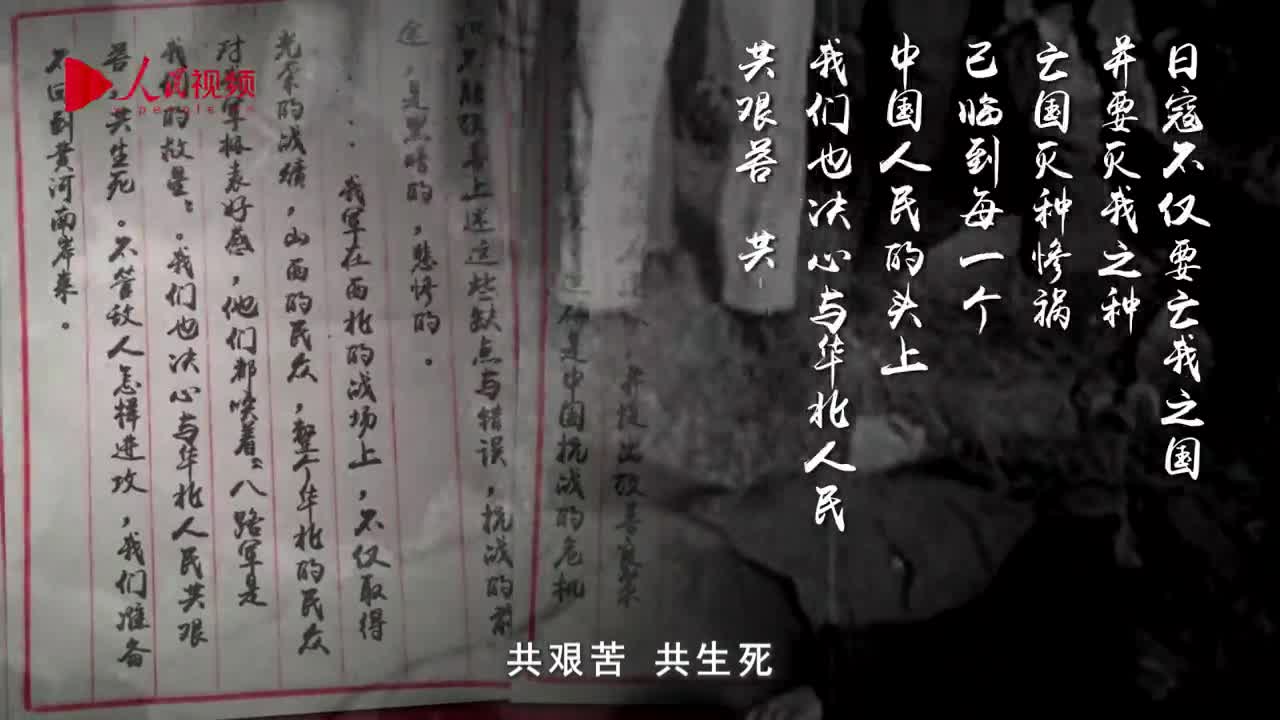 人民视频
日寇不仅要亡我之国
并要灭我之种
亡国灭种惨祸
已临到每一个
中国人民的头上
我们也决心与华北人民
共艰苦 共
并提出改善良策
是中国抗战的危机
上述这些缺点与错误，抗战的前
途，是黑暗的，悲惨的。
我军在西北的战场上，不仅取得
光荣的战绩，山西的民众，整个华北的民众
对 军极表好感，他们都唤着“八路军是
我们的救星”。我们也决心与华北人民共艰
苦，共生死。不管敌人怎样进攻，我们准备
不回到黄河南岸来。
共艰苦 共生死